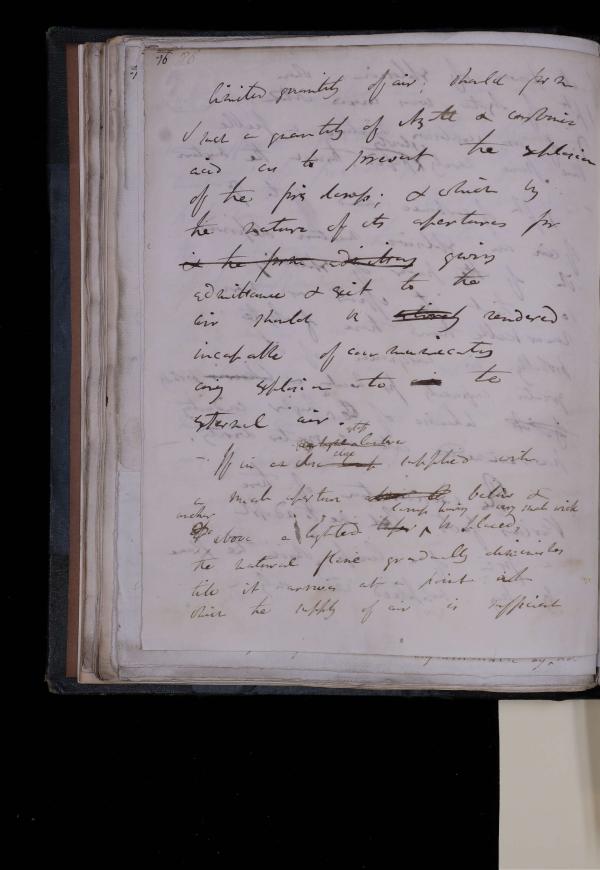 76
limited quantity of air; should form
such a quantity of Azote & carbonic
acid as to prevent the explosion
of the fire damp; & which by
the nature of its apertures for
is the form admitting giving
admittance & exit to the
air should be rendered
incapable of communicating
any explosion to the
external air.
If in a close supplied with
a small aperture below &
another lamp having a very small wick
above a lighted be placed,
the natural flame gradually diminishes
till it arrives at a point at
which the supply of air is sufficient